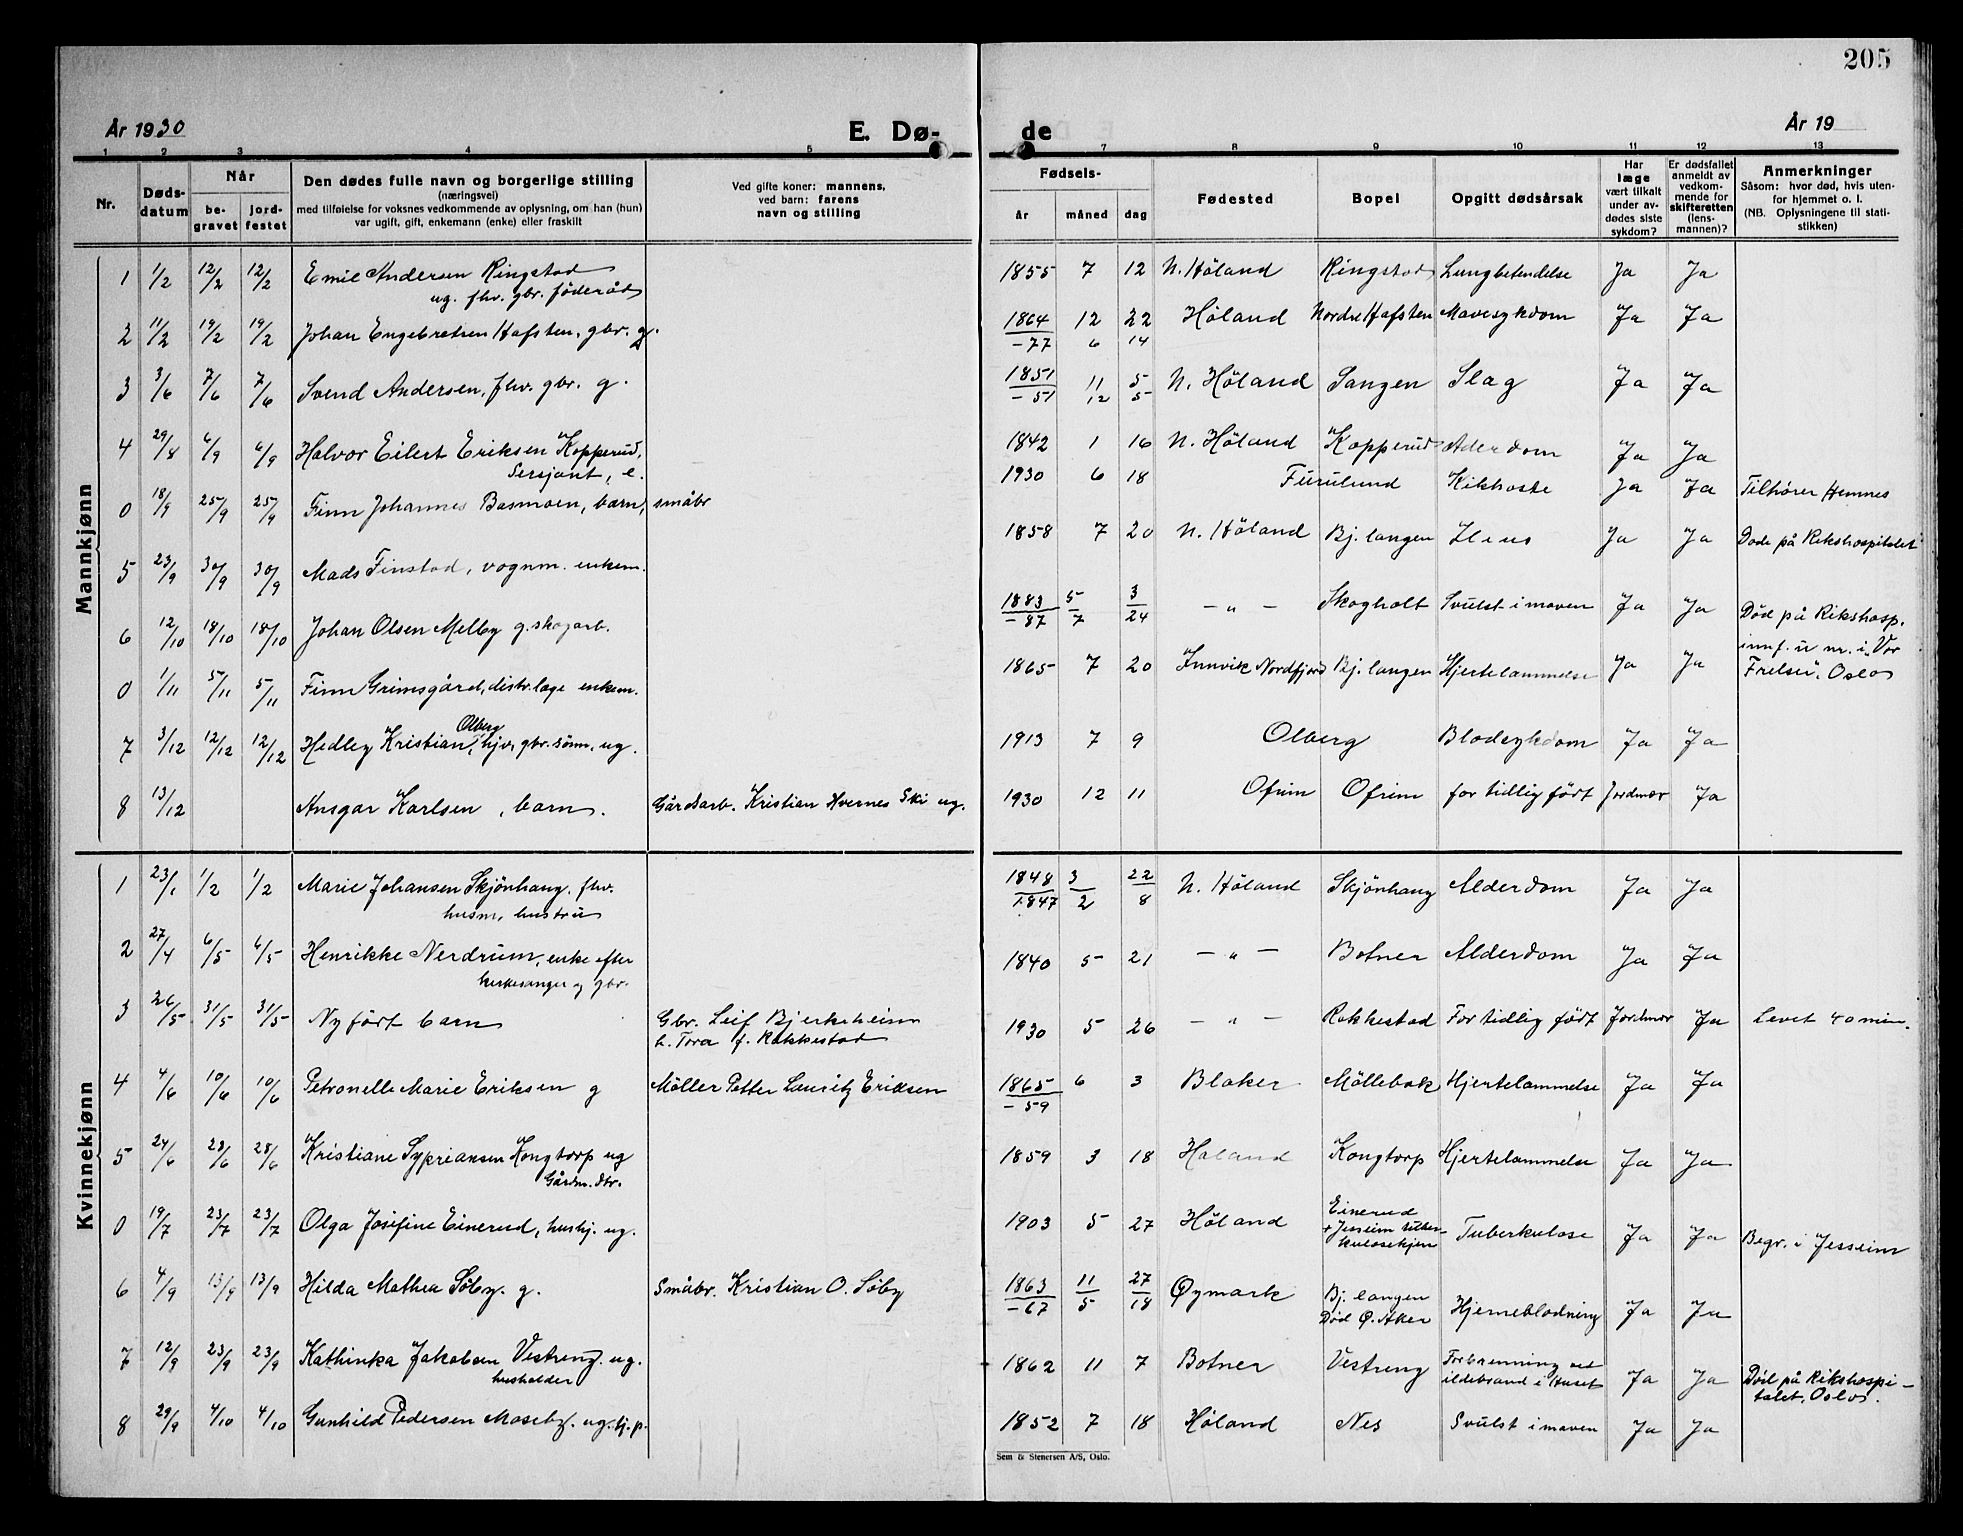 205
År 1930 E. Dø- de År 19
1 2 3 4 5 7 8 9 10 11 12 13
Nr. Døds-datum Når be-gravet jord-festet Den dødes fulle navn og borgerlige stilling (næringsvei) med tilføielse for voksnes vedkommende av oplysning, om han (hun) var ugift, gift, enkemann (enke) eller fraskilt Ved gifte koner: mannens, ved barn: farens navn og stilling Fødsels- år måned dag Fødested Bopel Opgitt dødsårsak Har læge vært tilkalt under av-dødes siste sykdom? Er dødsfallet anmeldt av vedkom-mende for skifteretten (lens-mannen)? Anmerkninger Såsom: hvor død, hvis uten-for hjemmet o. l. (NB. Oplysningene til stati-stikken)
Mannkjønn
1 1/2 12/2 12/2 Emil Andersen Ringstad ug. fhv. gbr. föderåd 1855 7 12 N. Höland Ringstad Lungbetendelse Ja Ja
2 11/2 19/2 19/2 Johan Engebretsen Hafsten, gbr. g. 1864 12 22 Höland Nordre Hafsten Mavesykdom Ja Ja
-77 6 14
3 3/6 7/6 7/6 Svend Andersen, fhv. gbr. g. 1851 11 5 N. Höland Langen Slag Ja Ja
-51 12 5
4 29/8 6/9 6/9 Halvor Eilert Eriksen Kopperud, Sersjant, e. 1842 1 16 N. Höland Kopperud Alderdom Ja Ja
0 18/9 25/9 25/9 Finn Johannes Basmoen, barn, småbr 1930 6 18 Furulund Kikhoste Ja Ja Tilhører Hemnes
5 23/9 30/9 30/9 Mads Finstad, vognm. enkem. 1858 7 20 N. Höland Bj. langen Ileus Ja Ja Døde på Rikshospitalet
6 12/10 18/10 18/10 Johan Olsen Melby g. skogarb. 1883 5 3 - " - Skogholt Svulst i maven Ja Ja Død på Rikshosp.
-87 7 24
0 1/11 5/11 5/11 Finn Grimsgård, distr.læge enkem. 1865 7 20 Innvik Nordfjord Bj. langen Hjertelammelse Ja Ja innf. u nr. i "Vor Frelser", Oslo
7 3/12 12/12 12/12 Hedley Kristian Olberg, hjv, gbr. sönn, ug. 1913 7 9 Olberg Blodsykdom Ja Ja
8 13/12 Ansgar Karlsen, barn. Gårdsarb. Kristian Hvernes Ski ug. 1930 12 11 Ofrim Ofrim for tidlig født Jordmor Ja
Kvinnekjønn
1 23/1 1/2 1/2 Marie Johansen Skjönhaug. fhv. husm. hustru 1848 3 22 N. Höland Skjönhaug Alderdom Ja Ja
1847 2 8
2 27/4 6/5 6/5 Henrikke Nerdrum, enke efter kirkesanger og gbr. 1840 5 21 - " - Botner Alderdom Ja Ja
3 26/5 31/5 31/5 Nyfört barn Gbr. Leif Bjerkeheim h. Tora f. Rakkestad 1930 5 26 - " - Rakkestad For tidlig født Jordmor Ja Levet 40 min.
4 4/6 10/6 10/6 Petronelle Marie Eriksen g Möller Petter Lauritz Eriksen 1865 6 3 Blaker Möllebak Hjertelammelse Ja Ja
-59
5 24/6 28/6 28/6 Kristiane Sypriansen Kongtorp ug Gårdm. dtr. 1859 3 18 Höland Kongtorp Hjertelammelse Ja Ja
0 19/7 23/7 23/7 Olga Josefine Einerud, hushj. ug. 1903 5 27 Höland Einerud + Jesseim tuber-kulosehjem Tuberkulose Ja Ja Begr. i Jesseim
6 4/9 13/9 13/9 Hilda Mathea Søby. g. Småbr. Kristian O. Søby 1863 11 27 Øymark Bj. langen Død Ø. Aker Hjerneblødning Ja Ja
-67 5 18
7 12/9 23/9 23/9 Kathinka Jakobsen Vestreng. ug. husholder 1862 11 7 Botner Vestreng Forbrenning ved ildebrand i Huset Ja Ja Død på Rikshospi-talet, Oslo.
8 29/9 4/10 4/10 Gunhild Pedersen Moseby. ug. hj.p. 1852 7 18 Höland Nes Svulst i maven Ja Ja
Sem & Stenersen A/S, Oslo.